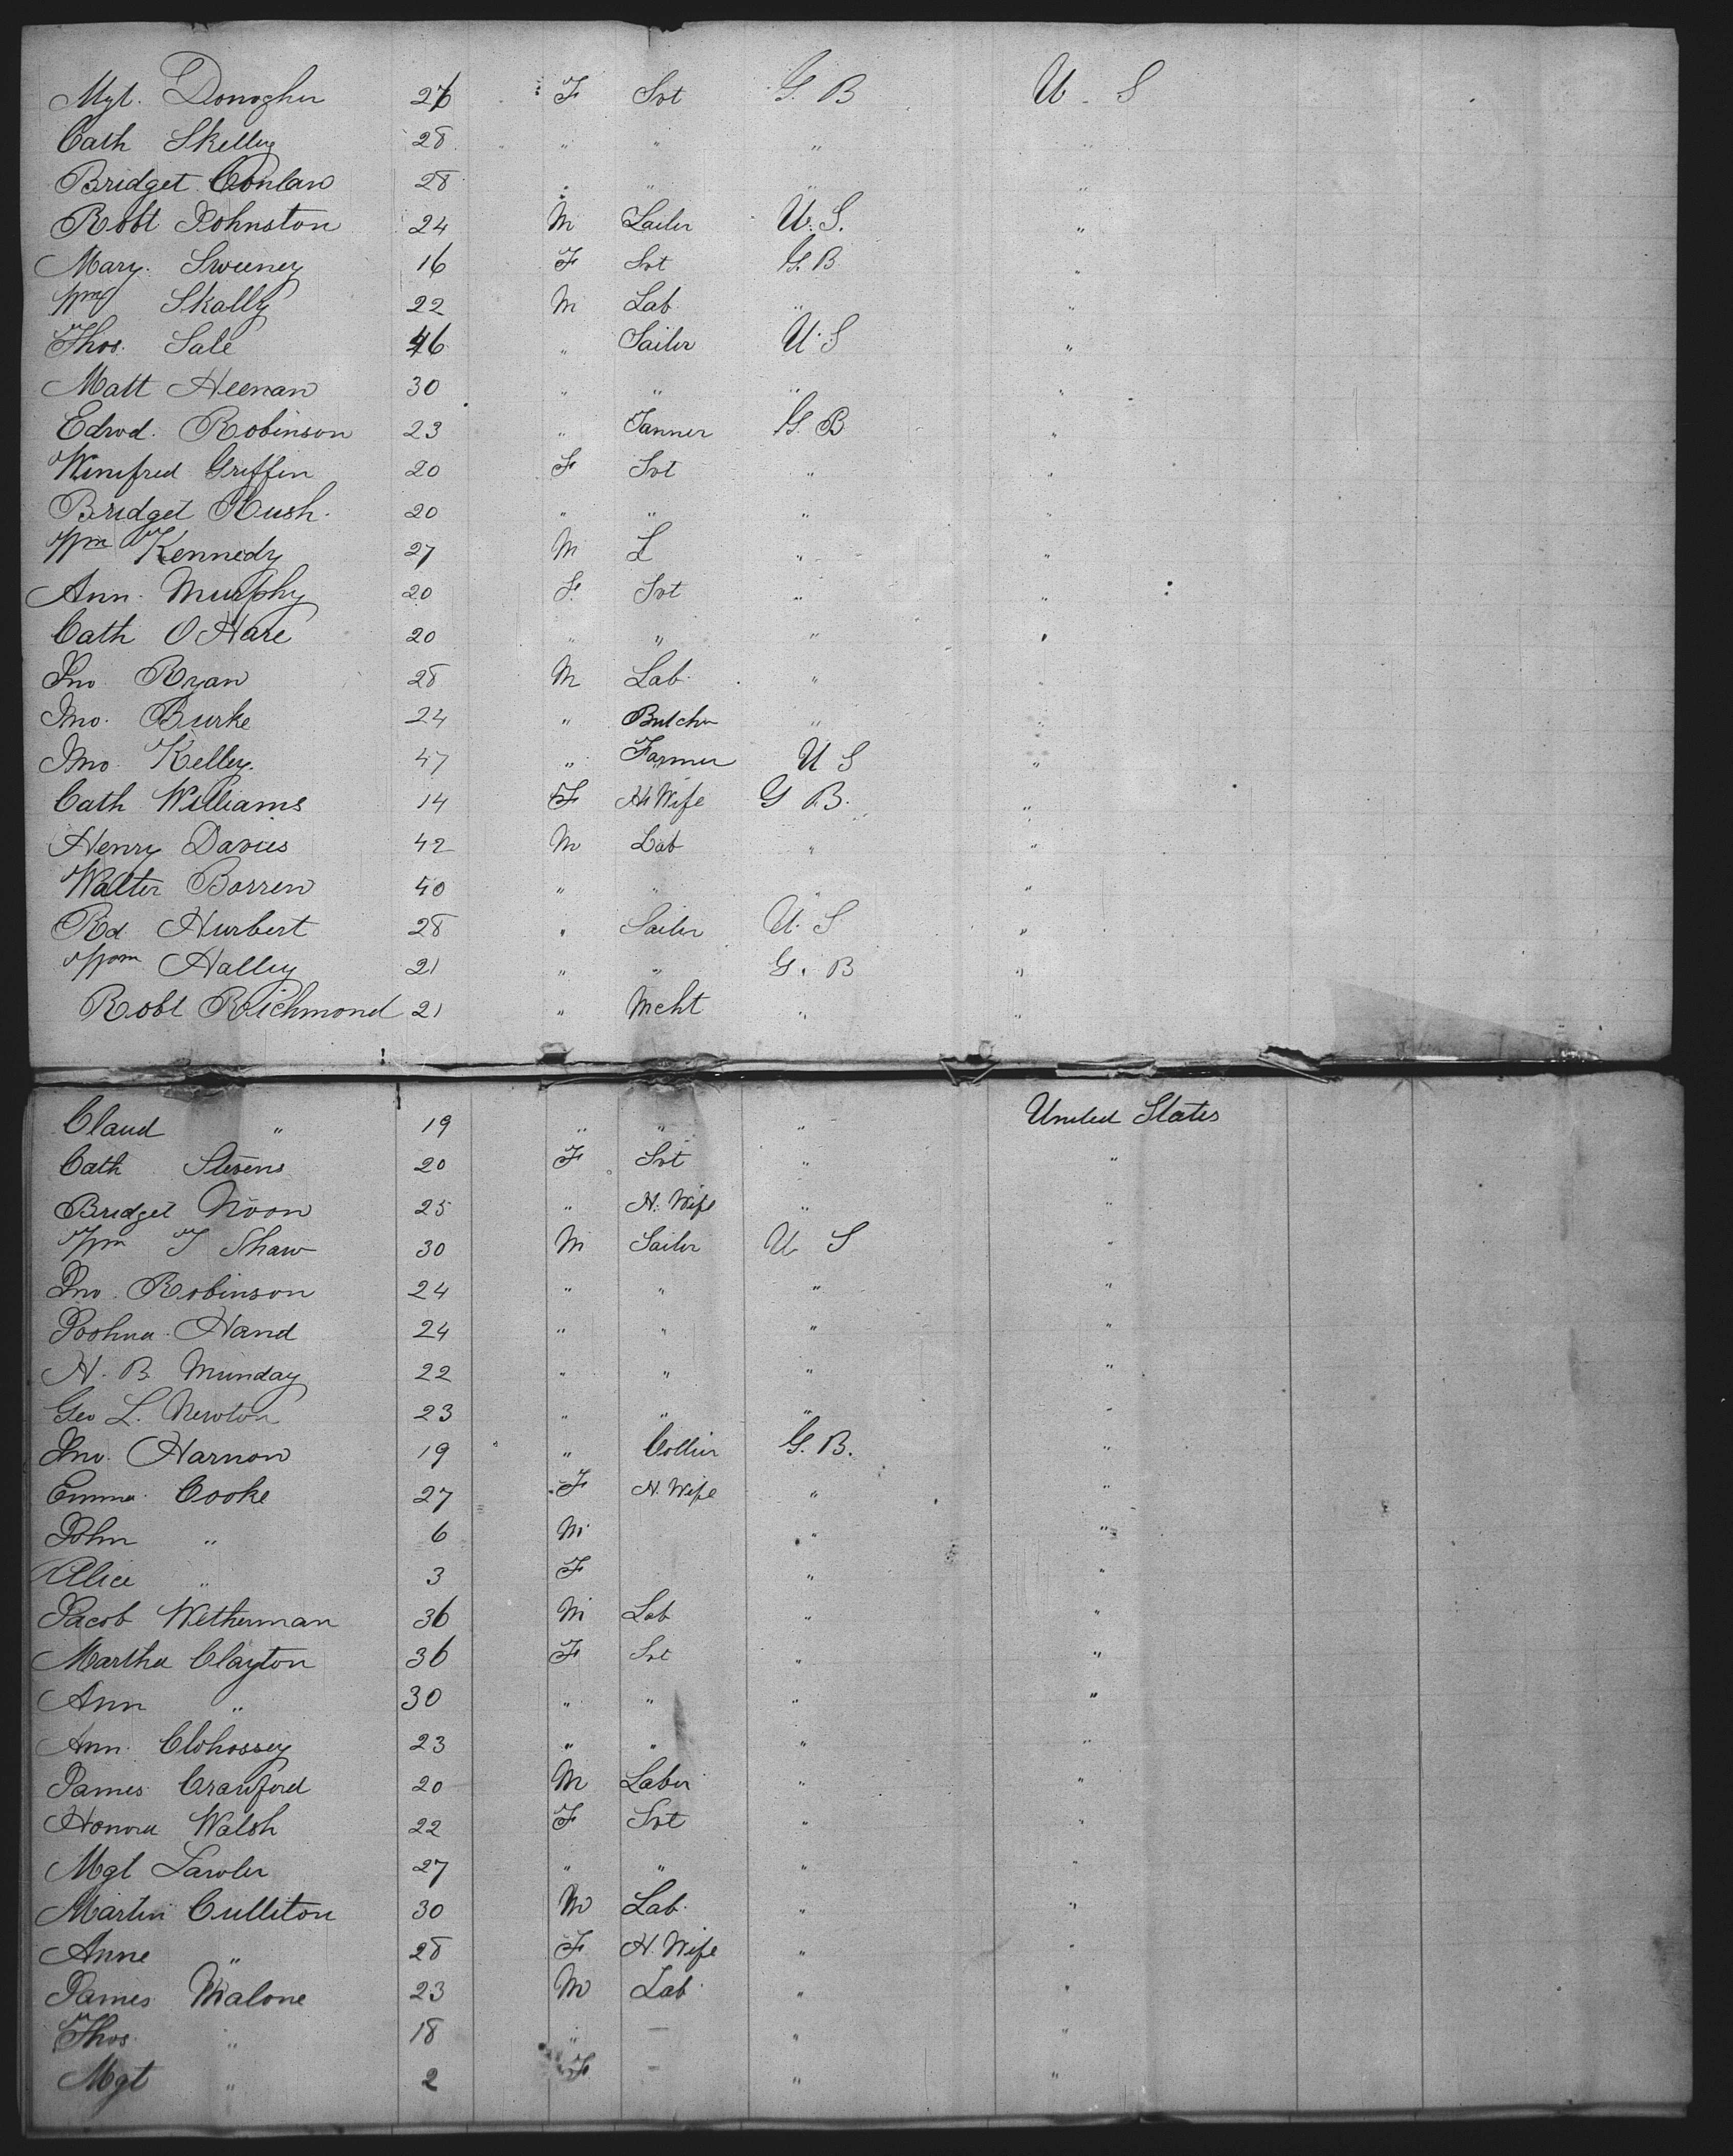 Mgt. Donogher 26 F Svt G. B U. S
Cath Skelley 28 " " " "
Bridget Conlan 28 " " " "
Robt Johnston 24 M Sailer U. S. "
Mary. Sweeney 16 F Svt G. B "
Wm Skally 22 M Lab " "
Thos. Sale 46 " Sailer U. S "
Matt Heenan 30 " " " "
Edwd. Robinson 23 " Tanner G. B "
Winifred Griffin 20 F Svt " "
Bridget Rush. 20 " " " "
Wm Kennedy 27 M L " "
Ann. Murphy 20 F. Svt " "
Cath O Hare 20 " " " "
Jno Ryan 28 M Lab. " "
Jno. Burke 24 " Butcher " "
Jno. Kelley. 47 " Farmer U S "
Cath Williams 14 F H Wife G B. "
Henry Davies 42 M Lab " "
Walter Borren 40 " " " "
Rd Hurbert 28 " Sailer U. S "
Wm Halley 21 " " G. B "
Robt Richmond 21 " Mcht " "
Claud " 19 " " " United States
Cath Stevens 20 F Svt " "
Bridget Noon 25 " H. Wife " "
Wm J Shaw 30 M Sailer U S "
Jno. Robinson 24 " " " "
Joshua Hand 24 " " " "
H. B. Munday 22 " " " "
Geo L. Newton 23 " " " "
Jno. Harnon 19 " Collier G. B. "
Emma Cooke 27 F H. Wife " "
John " 6 M " "
Alice " 3 F " "
Jacob Wetherman 36 M Lab " "
Martha Clayton 36 F Svt " "
Ann " 30 " " " "
Ann. Clohossey 23 " " " "
James Crawford 20 M Laber " "
Honora Walsh 22 F Svt " "
Mgt Lawler 27 " " " "
Martin Culliton 30 M Lab. " "
Anne " 28 F H. Wife " "
James Malone 23 M Lab. " "
Thos. " 18 " — " "
Mgt " 2 F — " "